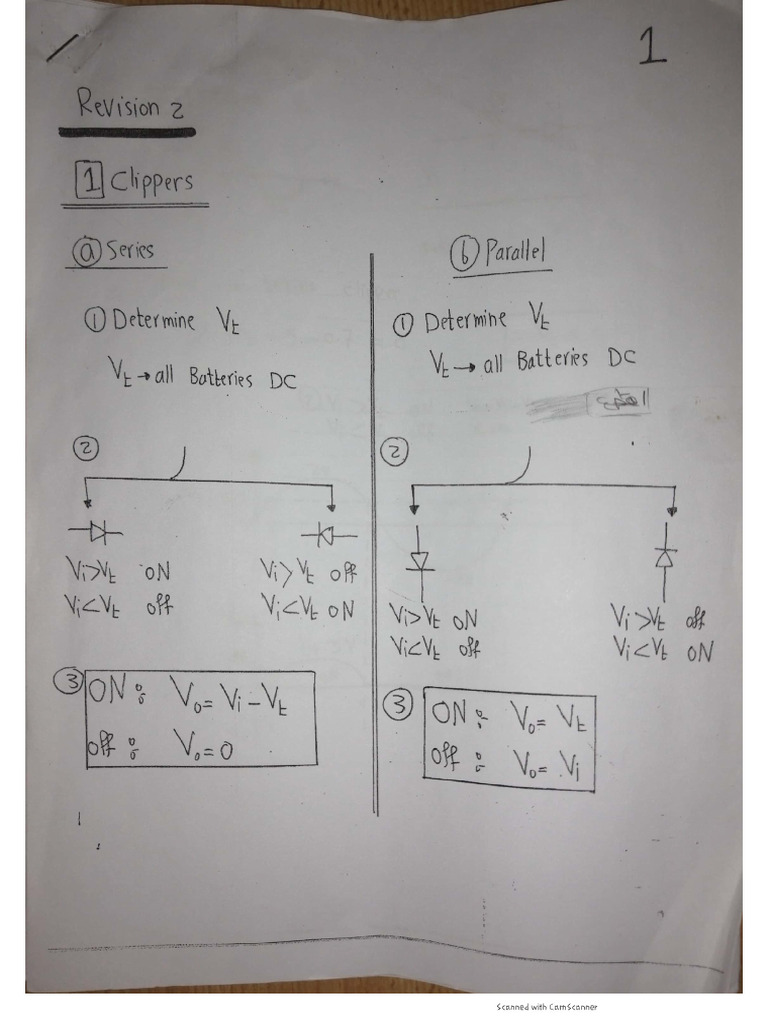 1
Revision 2
1 Clippers
a Series
1 Determine Vt
Vt → all Batteries DC
2
Vi>Vt ON
Vi<Vt off
Vi>Vt off
Vi<Vt ON
3
ON: Vo = Vi - Vt
off: Vo = 0
b Parallel
1 Determine Vt
Vt → all Batteries DC
2
Vi>Vt ON
Vi<Vt off
Vi>Vt off
Vi<Vt ON
3
ON: Vo = Vt
off: Vo = Vi
Scanned with CamScanner